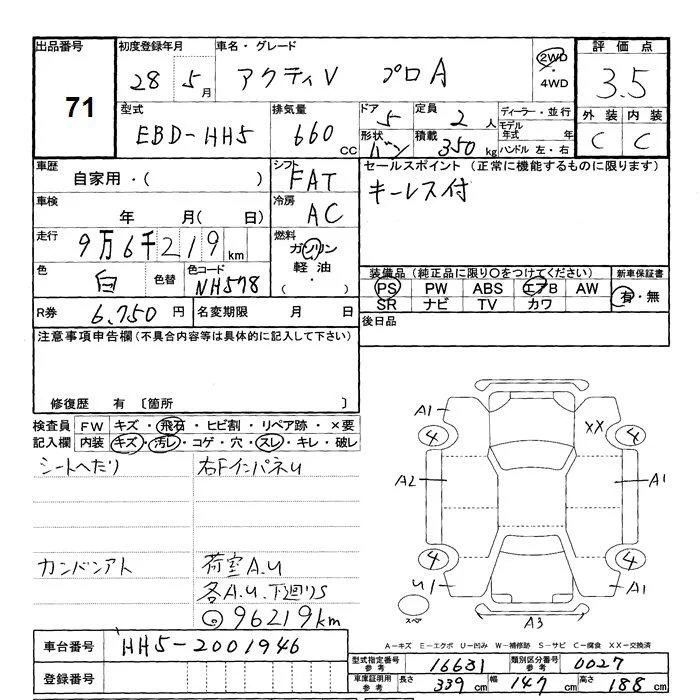 出品番号 初度登録年月 車名・グレード 評価点
71 28年 5月 アクティV プロA 2WD・4WD 3.5
型式 排気量 ドア 5 定員 2人 ディーラー・並行 外装 内装
EBD-HH5 660cc 形状 バン 積載 350kg モデル年式 年 ハンドル 左・右 C C
車歴 シフト セールスポイント (正常に機能するものに限ります)
自家用・( ) FAT キーレス付
車検 冷房
年 月( 日) AC
走行 9万6千219km 燃料 ガソリン
軽油・
色 白 色替 色コード NH578 装備品(純正品に限り○をつけてください) 新車保証書
PS PW ABS エアB AW 有・無
R券 6,750円 名変期限 月 日 SR ナビ TV カワ
注意事項申告欄(不具合内容等は具体的に記入して下さい) 後日品
修復歴 有 〔箇所 〕
検査員 FW キズ・飛石・ヒビ割・リペア跡・×要
記入欄 内装 キズ・汚レ・コゲ・穴・スレ・キレ・破レ
シートへたり 右FインパネU
カンバンアト 荷室A.U
各A.U.下廻りS
96219km
A1 XX
4 4
A2 A1
4 4
U1 A1
スペア A3
A-キズ E-エクボ U-凹み W-補修跡 S-サビ C-腐食 XX-交換済
車台番号 HH5-2001946
型式指定番号 参考 16631 類別区分番号 参考 0027
登録番号 車庫証明用 参考 長さ 339cm 幅 147cm 高さ 188cm